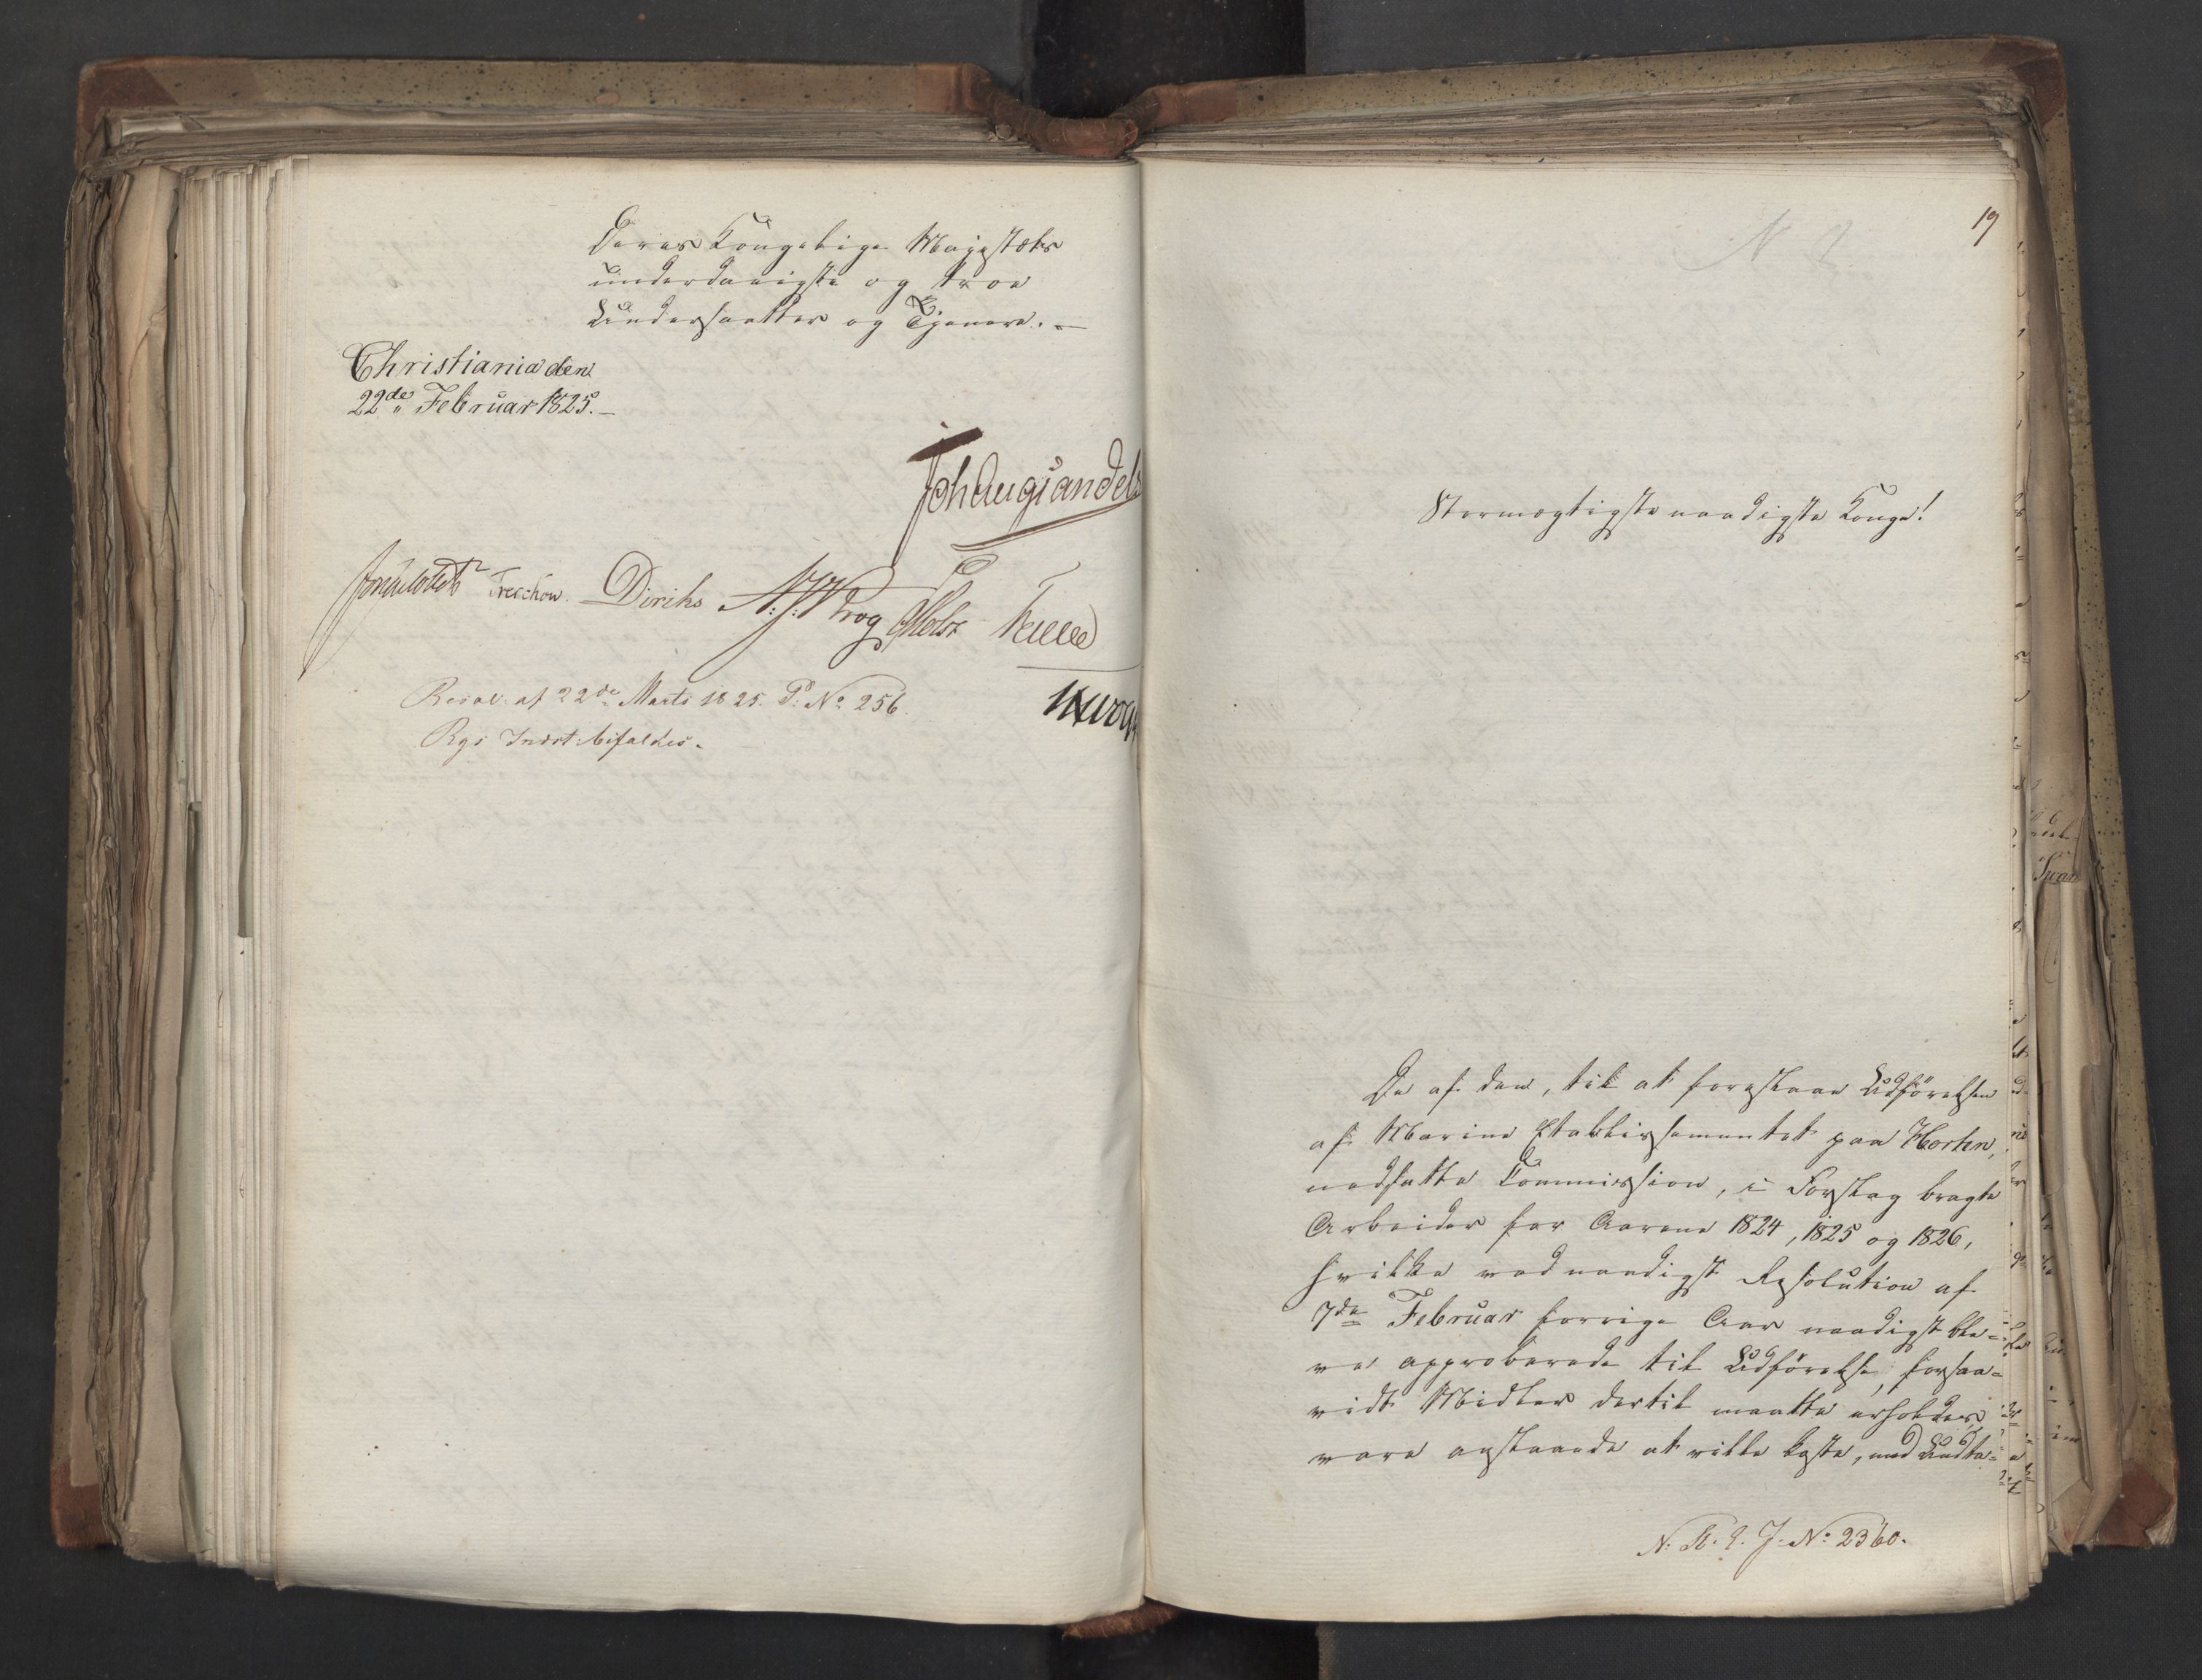 Deres Kongelige Majestæts
underdanigste og troe
Undersaatter og Tjenere. –
Christiania den
22de Februar 1825. –
Joh Aug Sandels
Treschow. Diriks Holst
Resol. af 22de Marts 1825. P: No 256.
Rgs Indst: bifaldes.
19
Stormægtigste naadigste Konge!
Da af den, til at forestaae Udförelsen
af Marine Etablissementet paa Horten,
nedsatte Commission, i Forslag bragte
Arbeider for Aarene 1824, 1825 og 1826,
hvilke ved naadigst Resolution af
7de Februar forrige Aar naadigst ble=
ve approberede til Udförelse, forsaa=
vidt Midler dertil maatte erholdes,
vare anslaaede at ville koste, med Undta=
N. R. J. No 2360.